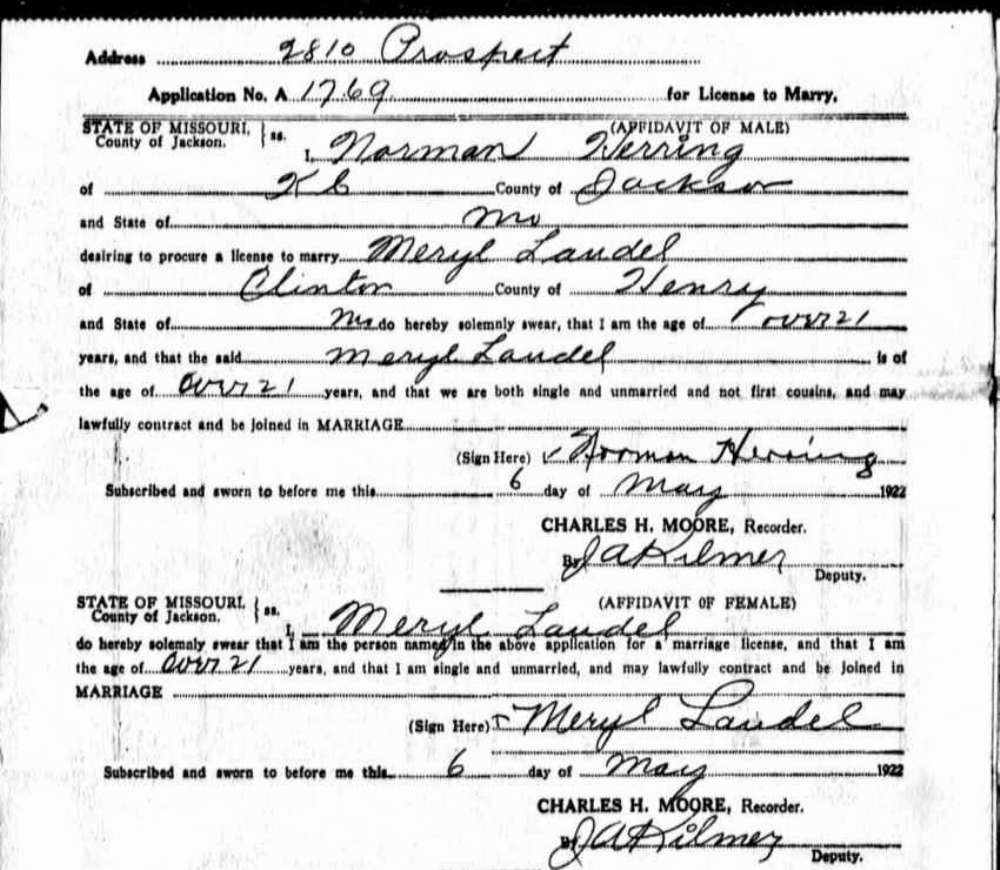 Address 2810 Prospect
Application No. A 1769 for License to Marry.
STATE OF MISSOURI, } ss. (AFFIDAVIT OF MALE)
County of Jackson.
I, Norman Herring
of K C County of Jackson
and State of Mo
desiring to procure a license to marry Meryl Laudel
of Clinton County of Henry
and State of Mo do hereby solemnly swear, that I am the age of over 21
years, and that the said Meryl Laudel is of
the age of over 21 years, and that we are both single and unmarried and not first cousins, and may
lawfully contract and be joined in MARRIAGE
(Sign Here) Norman Herring
Subscribed and sworn to before me this 6 day of May 1922
CHARLES H. MOORE, Recorder.
By J A Kilmer
Deputy.
STATE OF MISSOURI, } ss. (AFFIDAVIT OF FEMALE)
County of Jackson.
I, Meryl Laudel
do hereby solemnly swear that I am the person named in the above application for a marriage license, and that I am
the age of over 21 years, and that I am single and unmarried, and may lawfully contract and be joined in
MARRIAGE
(Sign Here) Meryl Laudel
Subscribed and sworn to before me this 6 day of May 1922
CHARLES H. MOORE, Recorder.
By J A Kilmer
Deputy.